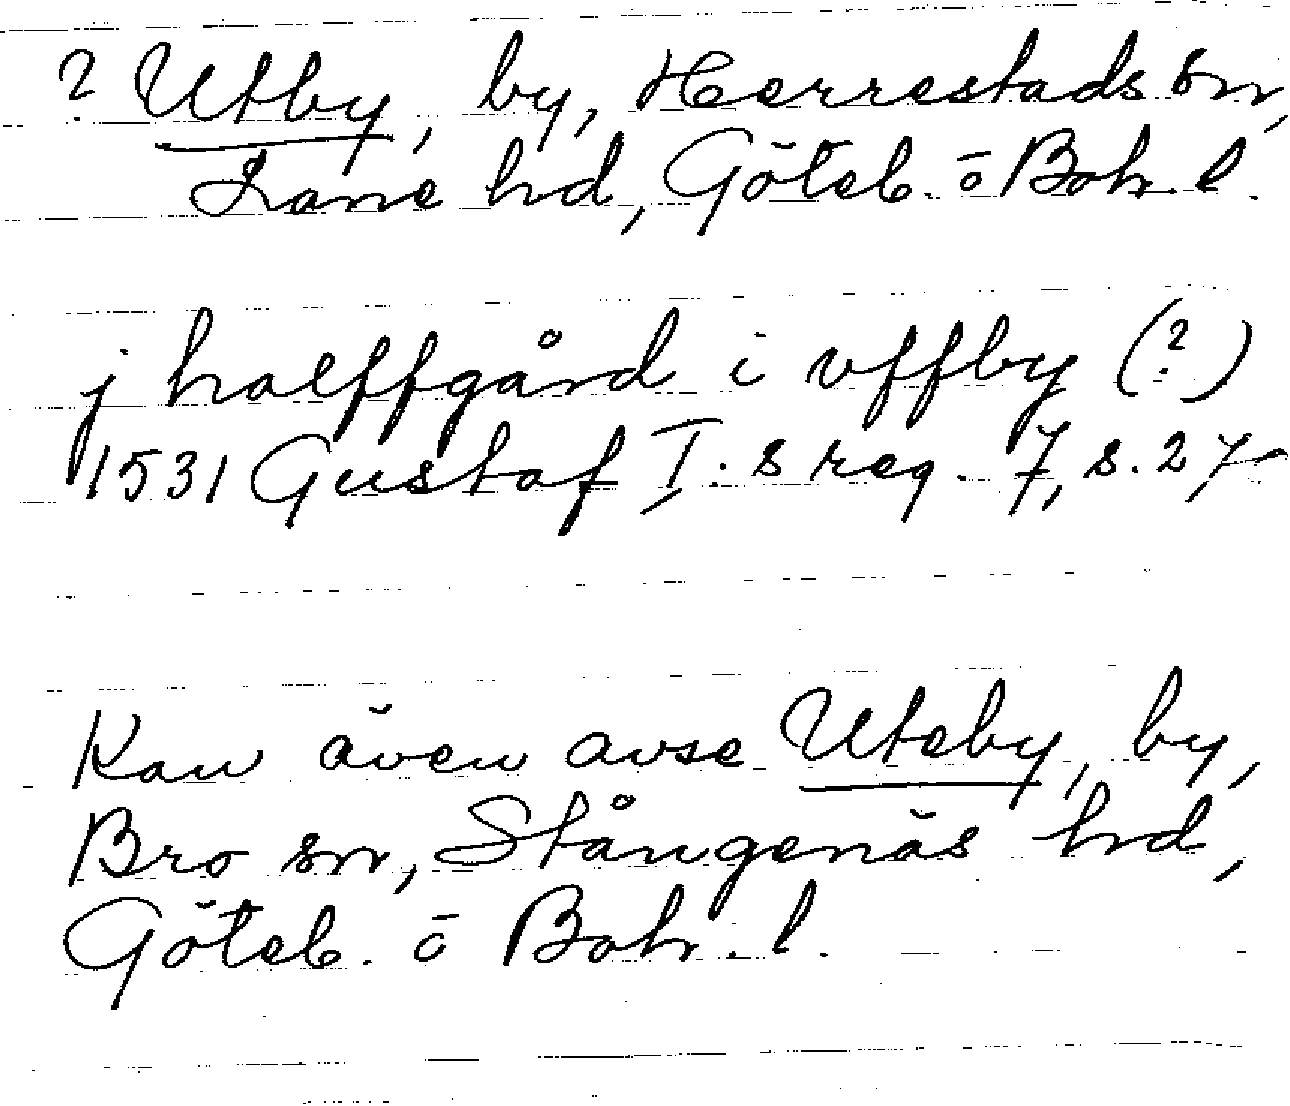 ? Utby, by, Herrestads sn,
Lane hd, Göteb. o Boh. l.
j halffgård i vffby (?)
1531 Gustaf I:s reg. 7, s. 27
Kan även avse Uteby, by,
Bro sn, Stångenäs hd,
Göteb. o Boh. l.